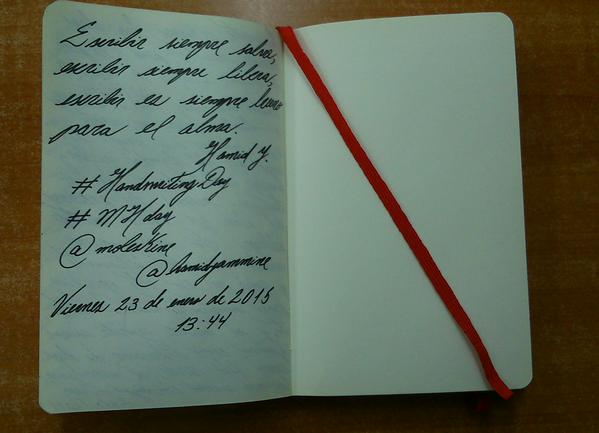 Escribir siempre salva,
escribir siempre libera,
escribir es siempre bueno
para el alma.
Hamid Y.
# Handwriting Day
# MHday
@moleskine
@hamidyammine
Viernes 23 de enero de 2015
13:44